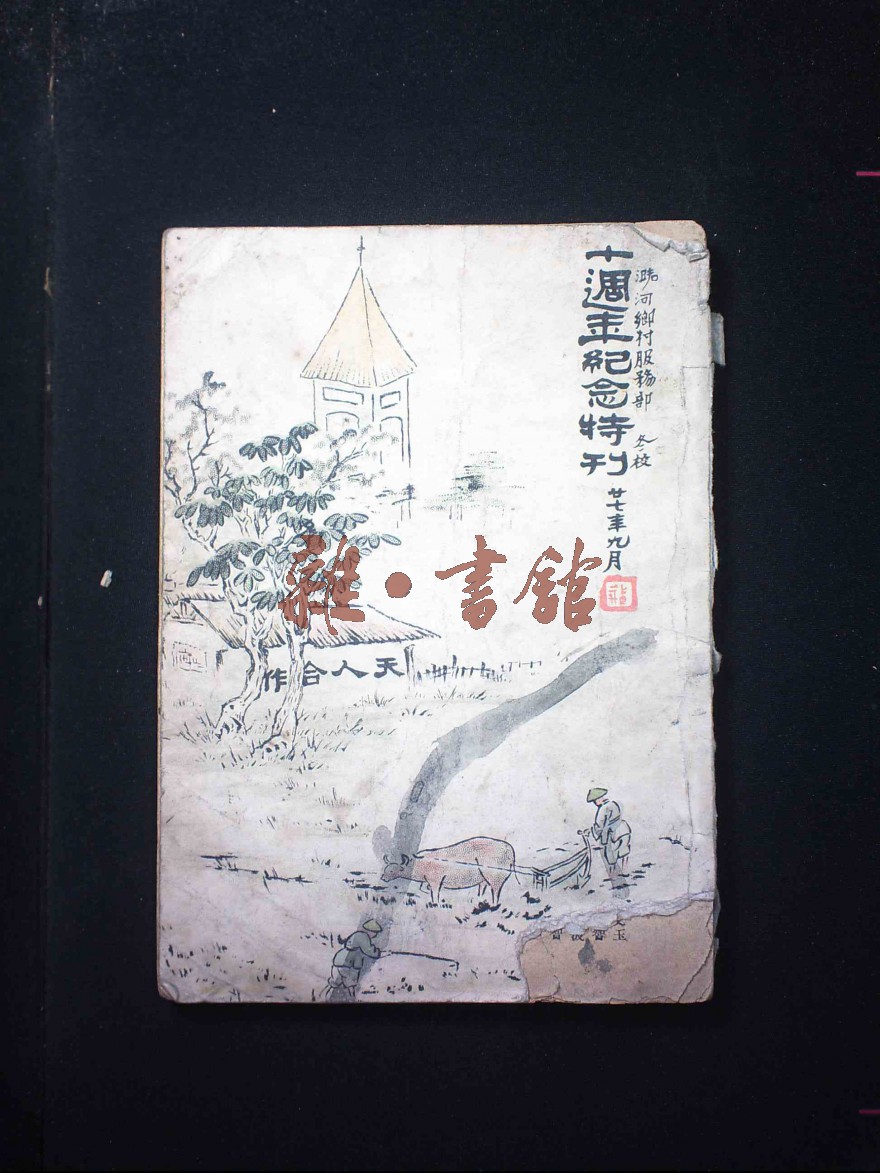 潞河鄉村服務部
十週年紀念特刊
廿七年九月
雜·書館
天人合作